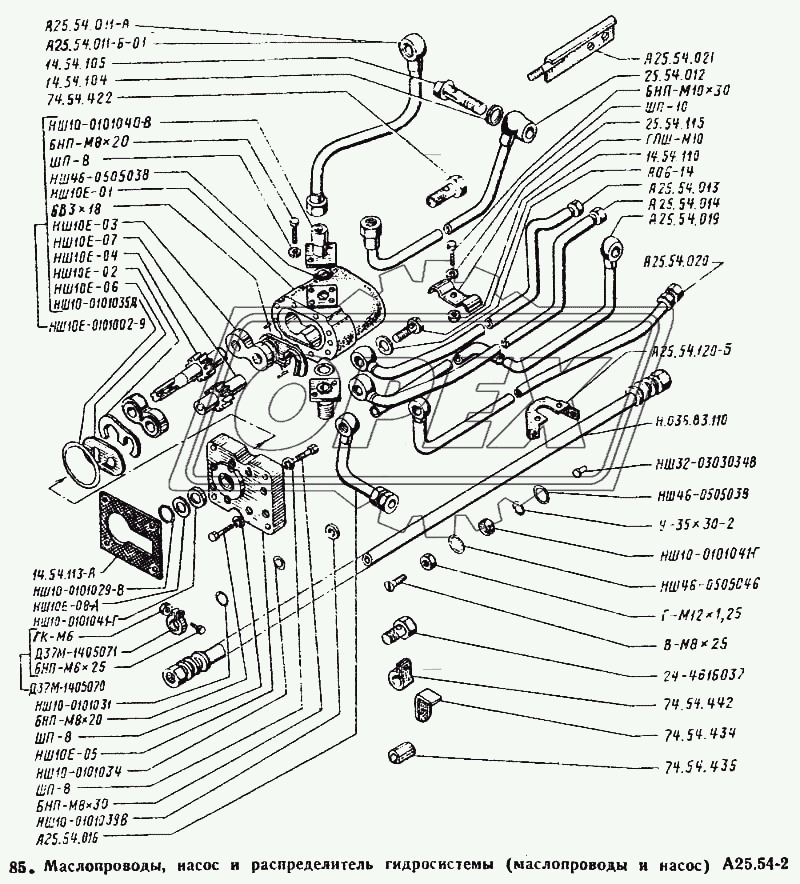 А25.54.011-А
А25.54.011-Б-01
14.54.105
14.54.104
74.54.422
НШ10-0101040-В
БНП-М8×20
ШП-8
НШ46-0505038
НШ10Е-01
БВ3×18
НШ10Е-03
НШ10Е-07
НШ10Е-04
НШ10Е-02
НШ10Е-06
НШ10-0101035Д
НШ10Е-0101002-9
14.54.113-А
НШ10-0101029-В
НШ10Е-08-А
НШ10-0101041-Г
ГК-М6
Д37М-1405071
БНП-М6×25
Д37М-1405070
НШ10-0101031
БНП-М8×20
ШП-8
НШ10Е-05
НШ10-0101034
ШП-8
БНП-М8×30
НШ10-0101039В
А25.54.016
А25.54.021
25.54.012
БНП-М10×30
ШП-10
25.54.115
ГПШ-М10
14.54.110
А06-14
А25.54.013
А25.54.014
А25.54.019
А25.54.020
А25.54.120-Б
Н.036.83.110
НШ32-0303034В
НШ46-0505039
У-35×30-2
НШ10-0101041Г
НШ46-0505046
Г-М12×1,25
В-М8×25
24-4616037
74.54.442
74.54.434
74.54.435
ОРЕХ
85. Маслопроводы, насос и распределитель гидросистемы (маслопроводы и насос) А25.54-2